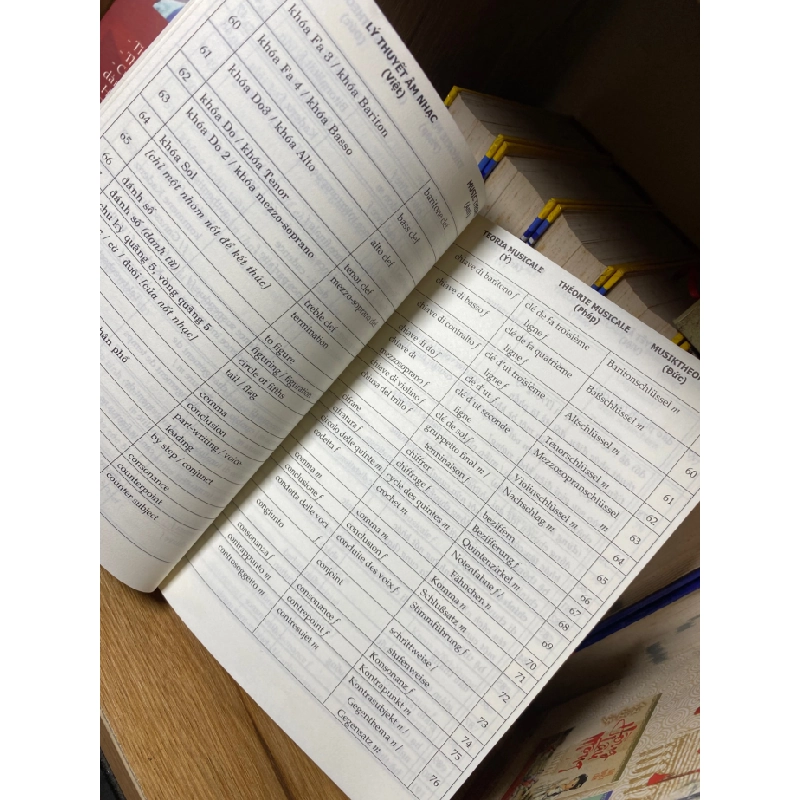 LÝ THUYẾT ÂM NHẠC
(Việt)
60
khóa Fa 3 / khóa Bariton
baritone clef
61
khóa Fa 4 / khóa Basso
bass clef
62
khóa Do3 / khóa Alto
alto clef
63
khóa Do / khóa Tenor
tenor clef
64
khóa Do 2 / khóa mezzo-soprano
65
khóa Sol
treble clef
[chỉ một nhóm nốt để kết thúc]
termination
66
đánh số
to figure
đánh số (danh từ)
figuring / figuration
chu kỳ quãng 5, vòng quãng 5
circle of fifths
[của nốt nhạc]
tail / flag
comma
conclusion
part-writing / voice
leading
by step / conjunct
consonance
counterpoint
counter subject
TEORIA MUSICALE
(Ý)
THÉORIE MUSICALE
(Pháp)
(Đức)
chiave di baritono f
clé de fa troisième
ligne f
Baritonschlüssel m
60
chiave di basso f
clé de fa quatrième
ligne f
Baßschlüssel m
61
chiave di contralto f
clé d'ut troisième
ligne f
Altschlüssel m
62
chiave di do f
clé d'ut f
Tenorschlüssel m
63
chiave di
mezzosoprano f
clé d'ut seconde
ligne
Mezzosopranschlüssel
m
64
chiave di violino f
clé de sol f
Violinschlüssel m
65
gruppetto final m /
terminaison f
Nachschlag m
66
cifrare
chiffrer
beziffern
67
chiffrage f
Bezifferung f
68
cycle des quintes m
Quintenzirkel m
69
codetta f
crochet m
Notenfahne f /
Fähnchen n
70
comma m
comma m
Komma n
71
conclusione f
conclusion f
Schlußsatz m
72
condotta delle voci
f
conduite des voix f
Stimmführung f
73
congiunto
conjoint
schrittweise /
stufenweise
74
consonanza f
consonance f
Konsonanz f
75
contrappunto m
contrepoint m
Kontrapunkt m
76
controsoggetto m
contresujet m
Kontrasubjekt n /
Gegenthema n /
Gegensatz m